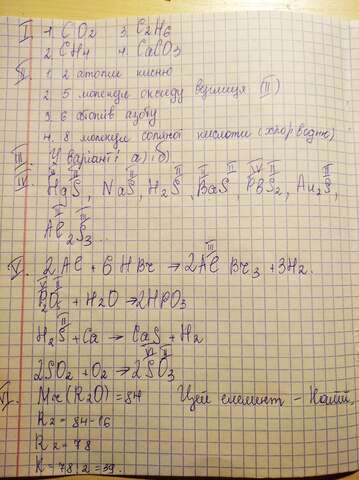 I. 1. CO2 3. C2H6
2. CH4 4. CaCO3
II. 1. 2 атоми кисню
2. 5 молекул оксиду вуглецю (II)
3. 6 атомів азоту
4. 8 молекул соляної кислоти (хлороводню)
III. У варіанті а) і б)
IV. II II HgS, NaS, I II H2S, II II BaS IV II PbS2, I II Au2S,
III II Al2S3...
V. 2Al + 6HBr → 2AlBr3 + 3H2.
V II P2O5 + H2O → 2HPO3
I II H2S + Ca → CaS + H2
2SO2 + O2 → VI II 2SO3
VI. Mr(R2O) = 84 Цей елемент - Калій.
R2 = 84-16
R2 = 78
R = 78:2 = 39.